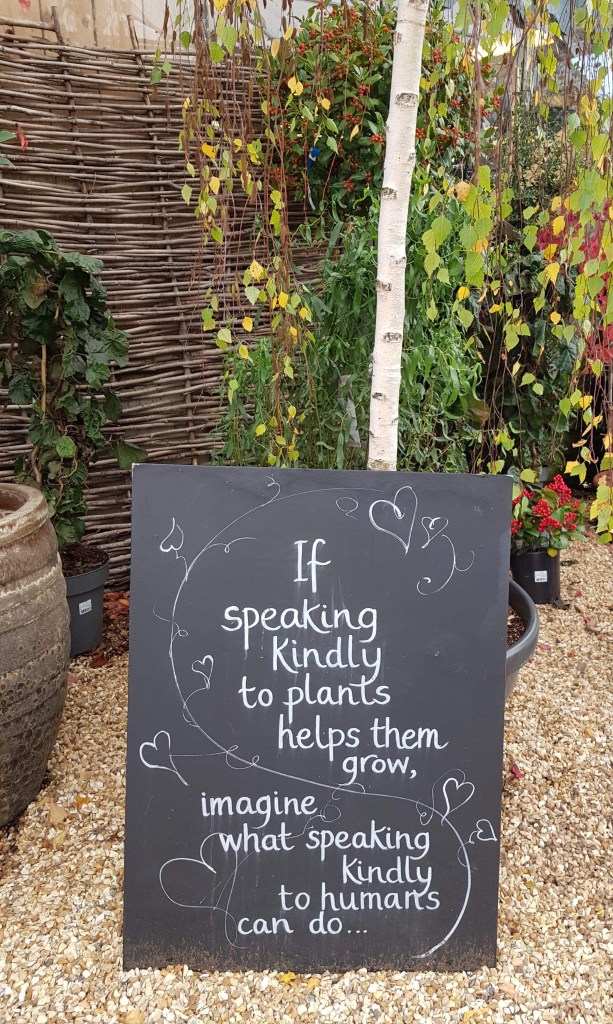 If
speaking
kindly
to plants
helps them
grow,
imagine
what speaking
kindly
to humans
can do...